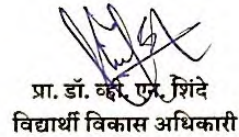 प्रा. डॉ. व्ही. एन. शिंदे
विद्यार्थी विकास अधिकारी